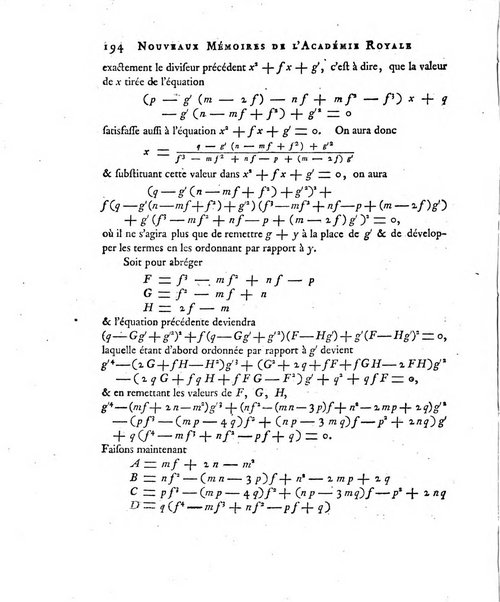 194 NOUVEAUX MÉMOIRES DE L'ACADÉMIE ROYALE
exactement le diviseur précédent x² + fx + g', c'est à dire, que la valeur
de x tirée de l'équation
(p — g' (m — 2f) — nf + mf² — f³) x + q
— g' (n — mf + f²) + g'² = 0
satisfasse aussi à l'équation x² + fx + g' = 0. On aura donc
x = (q — g' (n — mf + f²) + g'²) / (f³ — mf² + nf — p + (m — 2f) g')
& substituant cette valeur dans x² + fx + g' = 0, on aura
(q — g' (n — mf + f²) + g'²)² +
f(q — g'(n — mf + f²) + g'²) (f³ — mf² + nf — p + (m — 2f)g')
+ g' (f³ — mf² + nf — p + (m — 2f) g')² = 0,
où il ne s'agira plus que de remettre g + y à la place de g' & de dévelop-
per les termes en les ordonnant par rapport à y.
Soit pour abréger
F = f³ — mf² + nf — p
G = f² — mf + n
H = 2f — m
& l'équation précédente deviendra
(q — Gg' + g'²)² + f(q — Gg' + g'²)(F — Hg') + g'(F — Hg')² = 0,
laquelle étant d'abord ordonnée par rapport à g' devient
g'⁴ — (2G + fH — H²)g'³ + (G² + 2q + fF + fGH — 2FH)g'²
— (2qG + fqH + fFG — F²)g' + q² + qfF = 0,
& en remettant les valeurs de F, G, H,
g'⁴ — (mf + 2n — m²)g'³ + (nf² — (mn — 3p)f + n² — 2mp + 2q)g'²
— (pf³ — (mp — 4q)f² + (np — 3mq)f — p² + 2nq)g'
+ q(f⁴ — mf³ + nf² — pf + q) = 0.
Faisons maintenant
A = mf + 2n — m²
B = nf² — (mn — 3p)f + n² — 2mp + 2q
C = pf³ — (mp — 4q)f² + (np — 3mq)f — p² + 2nq
D = q(f⁴ — mf³ + nf² — pf + q)